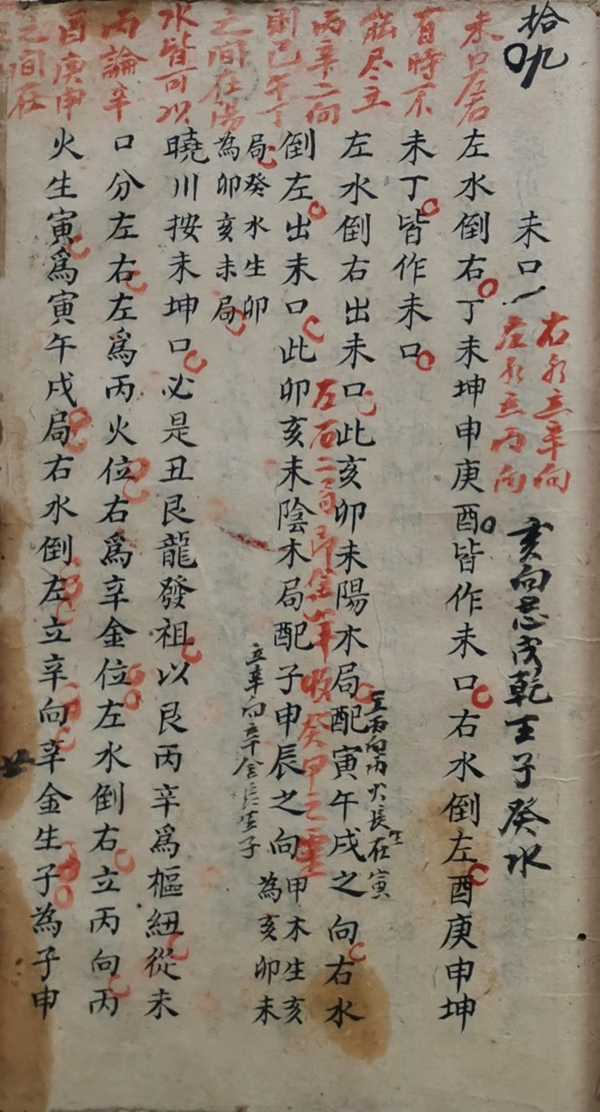 拾九
未口居
有時不
能尽立
丙辛二向
則巳午丁
之间在陽
水皆可以
丙論辛
酉庚申
之间在
未口
右水立辛向
左水立丙向
亥向忌戌乾壬子癸水
左水倒右丁未坤申庚酉皆作未口右水倒左酉庚申坤
未丁皆作未口
左水倒右出未口此亥卯未陽木局配寅午戌之向右水
立丙向丙火長生在寅
倒左出未口此卯亥未陰木局配子申辰之向甲木生亥
為亥卯未
左右二局
收癸甲之靈
局癸水生卯
為卯亥未局
立辛向辛金長生子
曉川按未坤口必是丑艮龍發祖以艮丙辛為樞紐從未
口分左右左爲丙火位右爲辛金位左水倒右立丙向丙
火生寅爲寅午戌局右水倒左立辛向辛金生子為子申